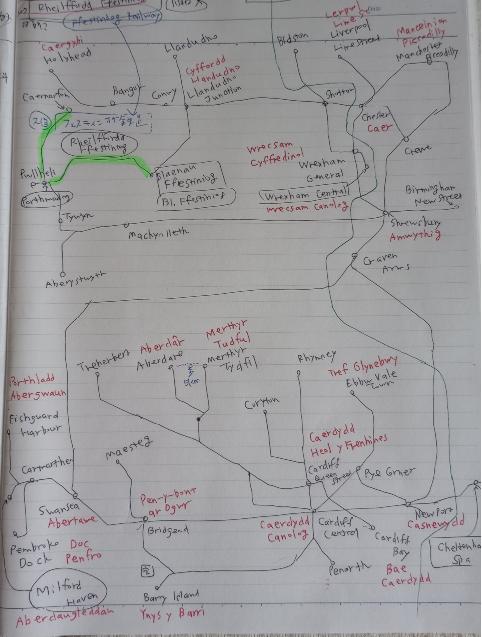 Rheilffordd Ffestiniog
Ffestiniog Railway
Caergybi
Holyhead
Llandudno
Cyffordd
Llandudno
Llandudno
Junction
Bidston
Liverpool
Lime Street
Piccadilly
Manchester
Piccadilly
Caernarfon
Bangor
Conwy
Shotton
Chester
Caer
Crewe
Rheilffordd
Ffestiniog
Wrecsam
Cyffredinol
Wrexham
General
Pwllheli
Porthmadog
Blaenau
Ffestiniog
Bl. Ffestiniog
Wrexham Central
Wrecsam Canolog
Birmingham
New Street
Tywyn
Machynlleth
Shrewsbury
Amwythig
Aberystwyth
Craven
Arms
Treherbert
Aberdâr
Aberdare
Merthyr
Tudful
Merthyr
Tydfil
Rhymney
Tref Glynebwy
Ebbw Vale
Town
Porthladd
Abergwaun
Fishguard
Harbour
Coryton
Caerdydd
Heol y Frenhines
Cardiff
Queen Street
Maesteg
Pye Corner
Carmarthen
Swansea
Abertawe
Pen-y-bont
ar Ogwr
Bridgend
Caerdydd
Canolog
Cardiff
Central
Newport
Casnewydd
Pembroke
Dock
Doc
Penfro
Cardiff
Bay
Bae
Caerdydd
Cheltenham
Spa
Penarth
Milford
Haven
Aberdaugleddau
Barry Island
Ynys y Barri